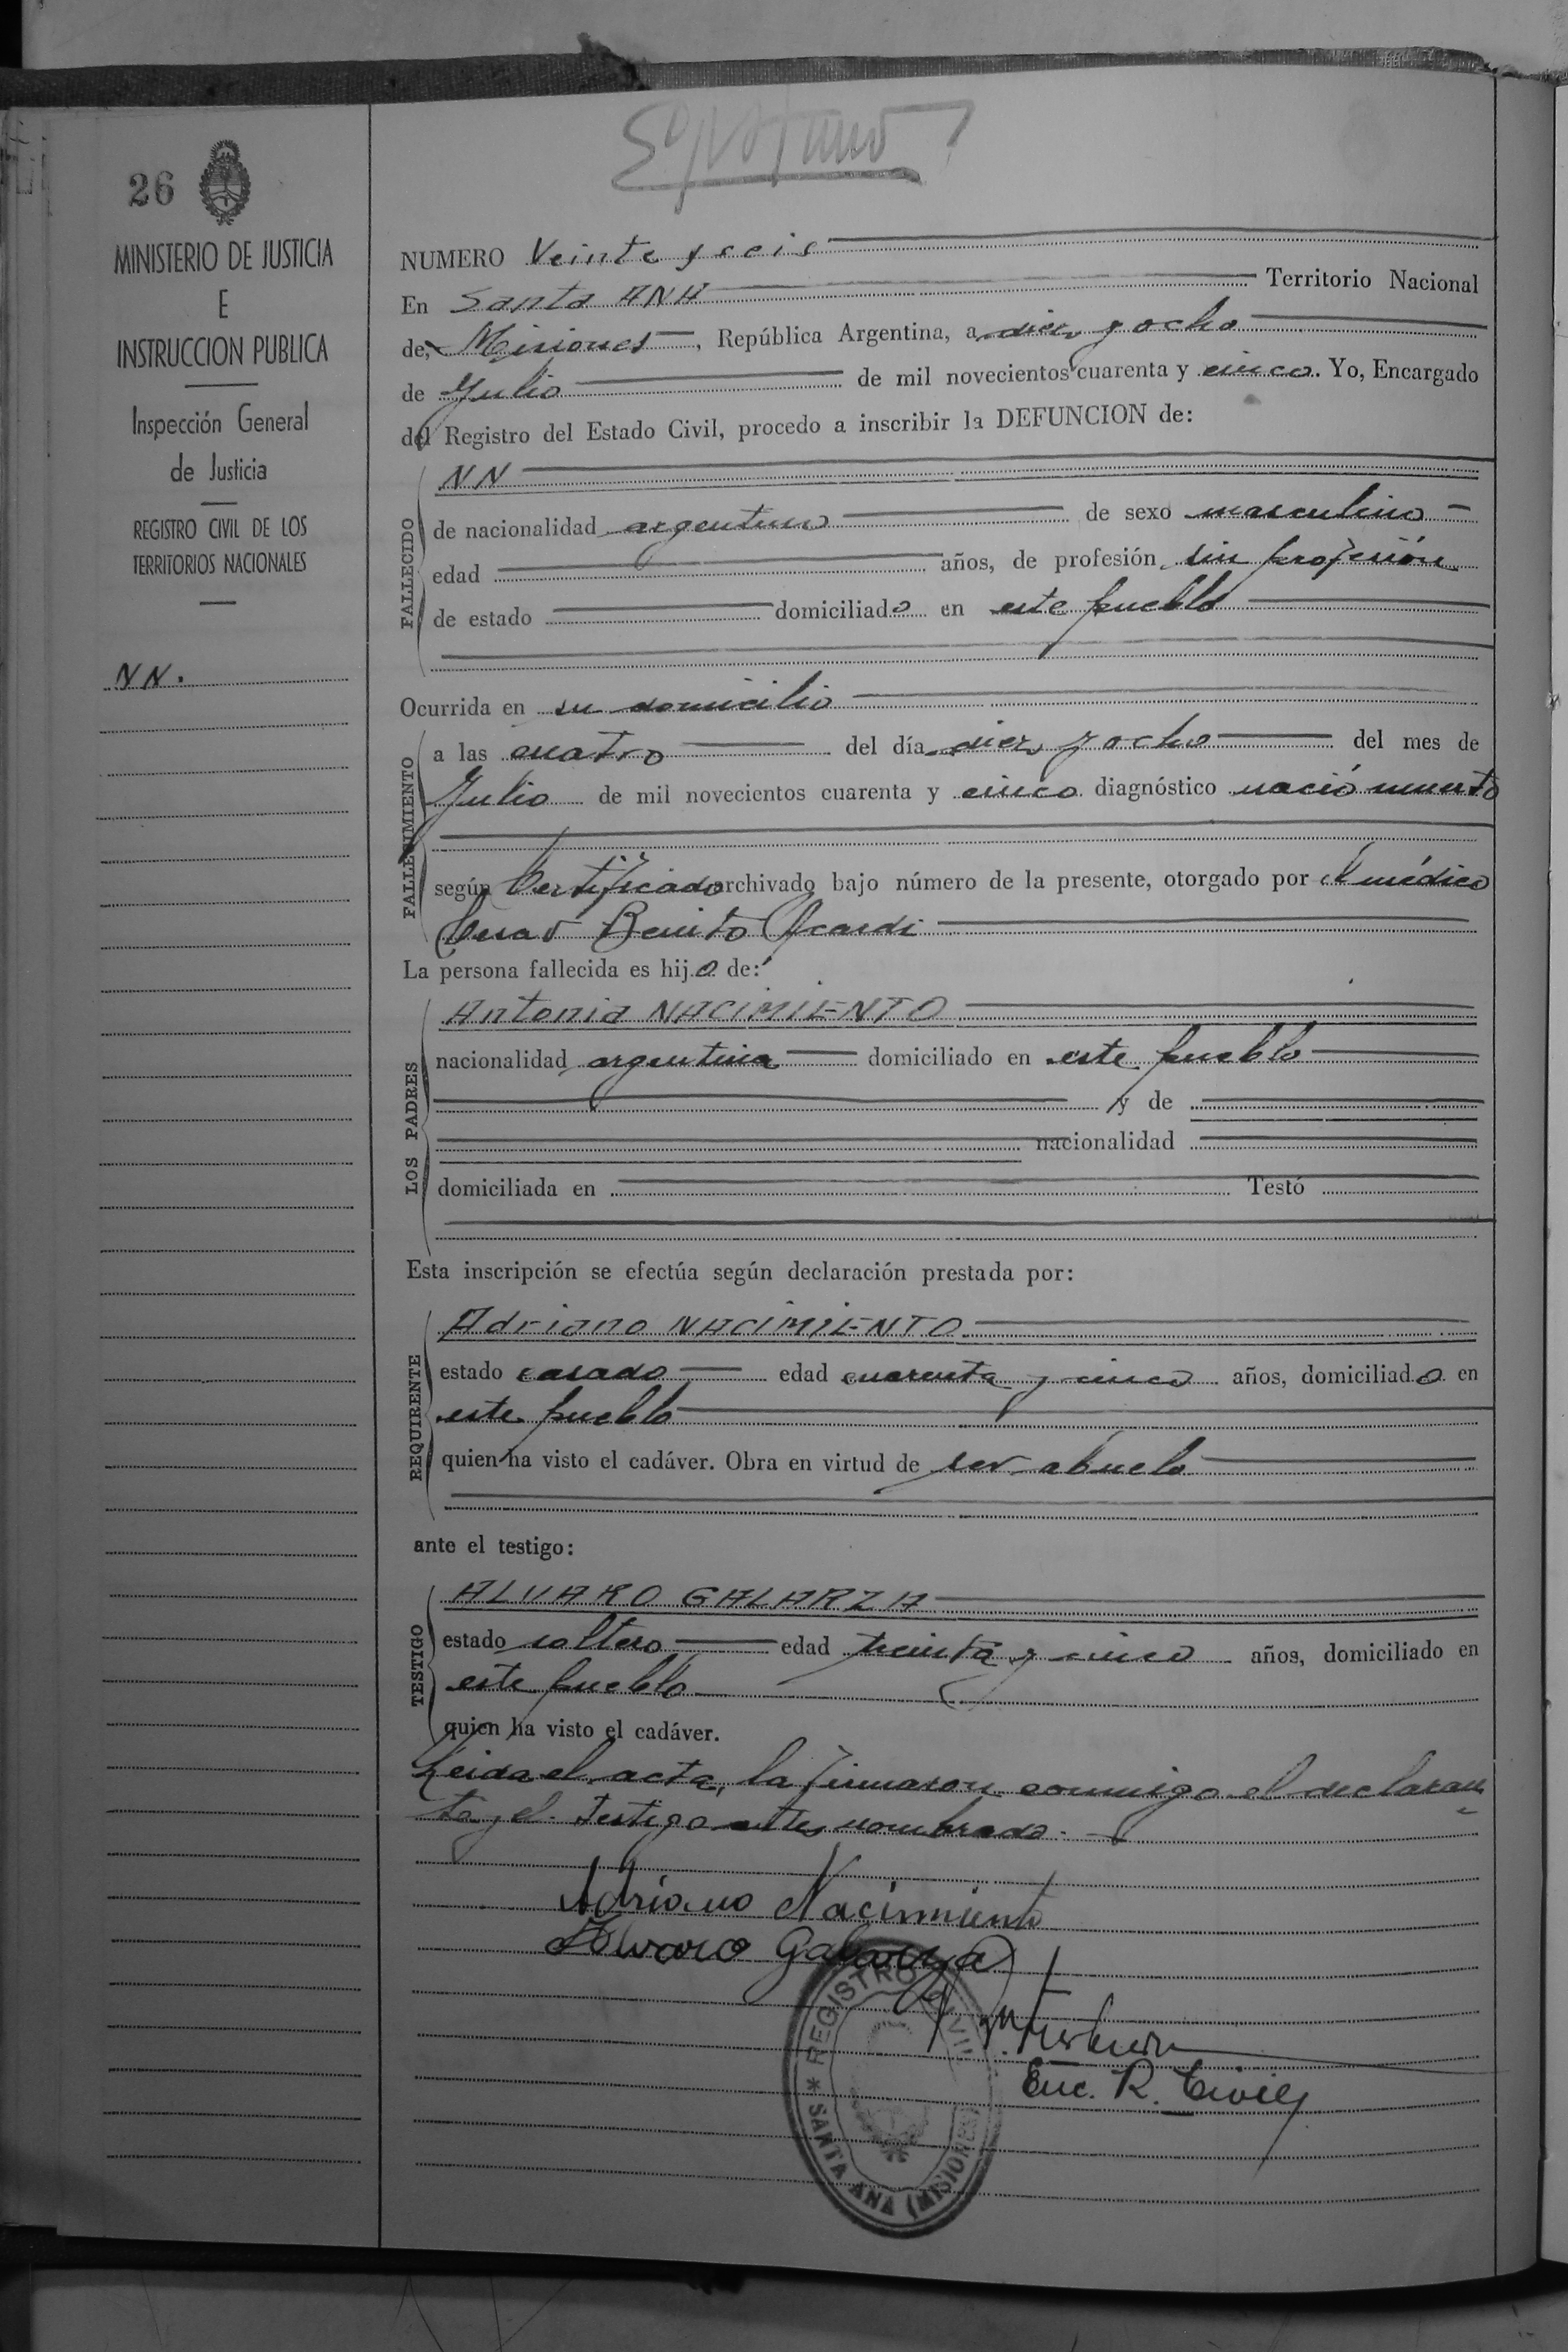 26
MINISTERIO DE JUSTICIA
E
INSTRUCCION PUBLICA
Inspección General
de Justicia
REGISTRO CIVIL DE LOS
TERRITORIOS NACIONALES
NN.
NUMERO Veinte y seis
En Santa ANA Territorio Nacional
de Misiones, República Argentina, a diez y ocho
de Julio de mil novecientos cuarenta y cinco. Yo, Encargado
del Registro del Estado Civil, procedo a inscribir la DEFUNCION de:
FALLECIDO
NN
de nacionalidad argentino de sexo masculino
edad años, de profesión sin profesión
de estado domiciliado en este pueblo
Ocurrida en su domicilio
FALLECIMIENTO
a las cuatro del día diez y ocho del mes de
Julio de mil novecientos cuarenta y cinco diagnóstico nació muerto
según Certificado archivado bajo número de la presente, otorgado por el médico
Cesar Benito Acardi
La persona fallecida es hijo de:
LOS PADRES
Antonia NACIMIENTO
nacionalidad argentina domiciliado en este pueblo
y de
nacionalidad
domiciliada en Testó
Esta inscripción se efectúa según declaración prestada por:
REQUIRENTE
Adriano NACIMIENTO
estado casado edad cuarenta y cinco años, domiciliado en
este pueblo
quien ha visto el cadáver. Obra en virtud de ser abuelo
ante el testigo:
TESTIGO
ALVARO GALARZA
estado soltero edad treinta y cinco años, domiciliado en
este pueblo
quien ha visto el cadáver.
Leida el acta, la firmaron conmigo el declaran
te y el testigo antes nombrado.
Adriano Nacimiento
Alvaro Galarza
REGISTRO CIVIL
* SANTA ANA (MISIONES)
Enc. R. Civil